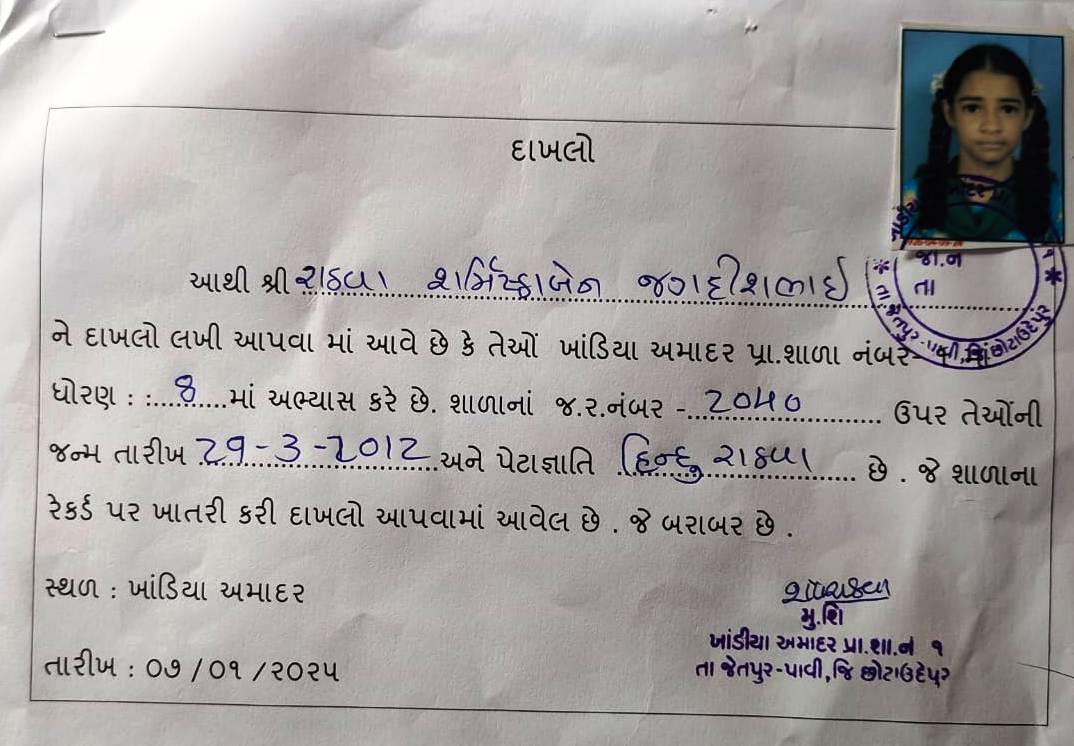 દાખલો
આથી શ્રી રાઠવા શર્મિષ્ઠાબેન જગદીશભાઈ
ને દાખલો લખી આપવા માં આવે છે કે તેઓં ખાંડિયા અમાદર પ્રા.શાળા નંબર-
ધોરણ : :...8...માં અભ્યાસ કરે છે. શાળાનાં જ.ર.નંબર -..2040.. ઉપર તેઓંની
જન્મ તારીખ 29-3-2012 અને પેટાજ્ઞાતિ હિન્દુ રાઠવા છે . જે શાળાના
રેકર્ડ પર ખાતરી કરી દાખલો આપવામાં આવેલ છે . જે બરાબર છે .
સ્થળ : ખાંડિયા અમાદર
તારીખ : ૦૭ /૦૧ /૨૦૨૫
મુ.શિ
ખાંડીયા અમાદર પ્રા.શા.નં ૧
તા જેતપુર-પાવી,જિ છોટાઉદેપુર
જા.ન
તા
તા જેતપુર-પાવી,જિ છોટાઉદેપુર